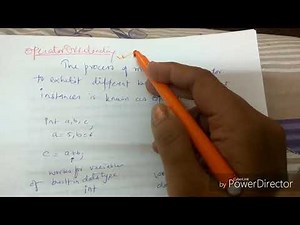 Operator Overloading
The process of
to exhibit different
instances is known as
int a, b, c,
a = 5, b = 6
c = a+b,
works for variables
of built-in datatype
int
by PowerDirector